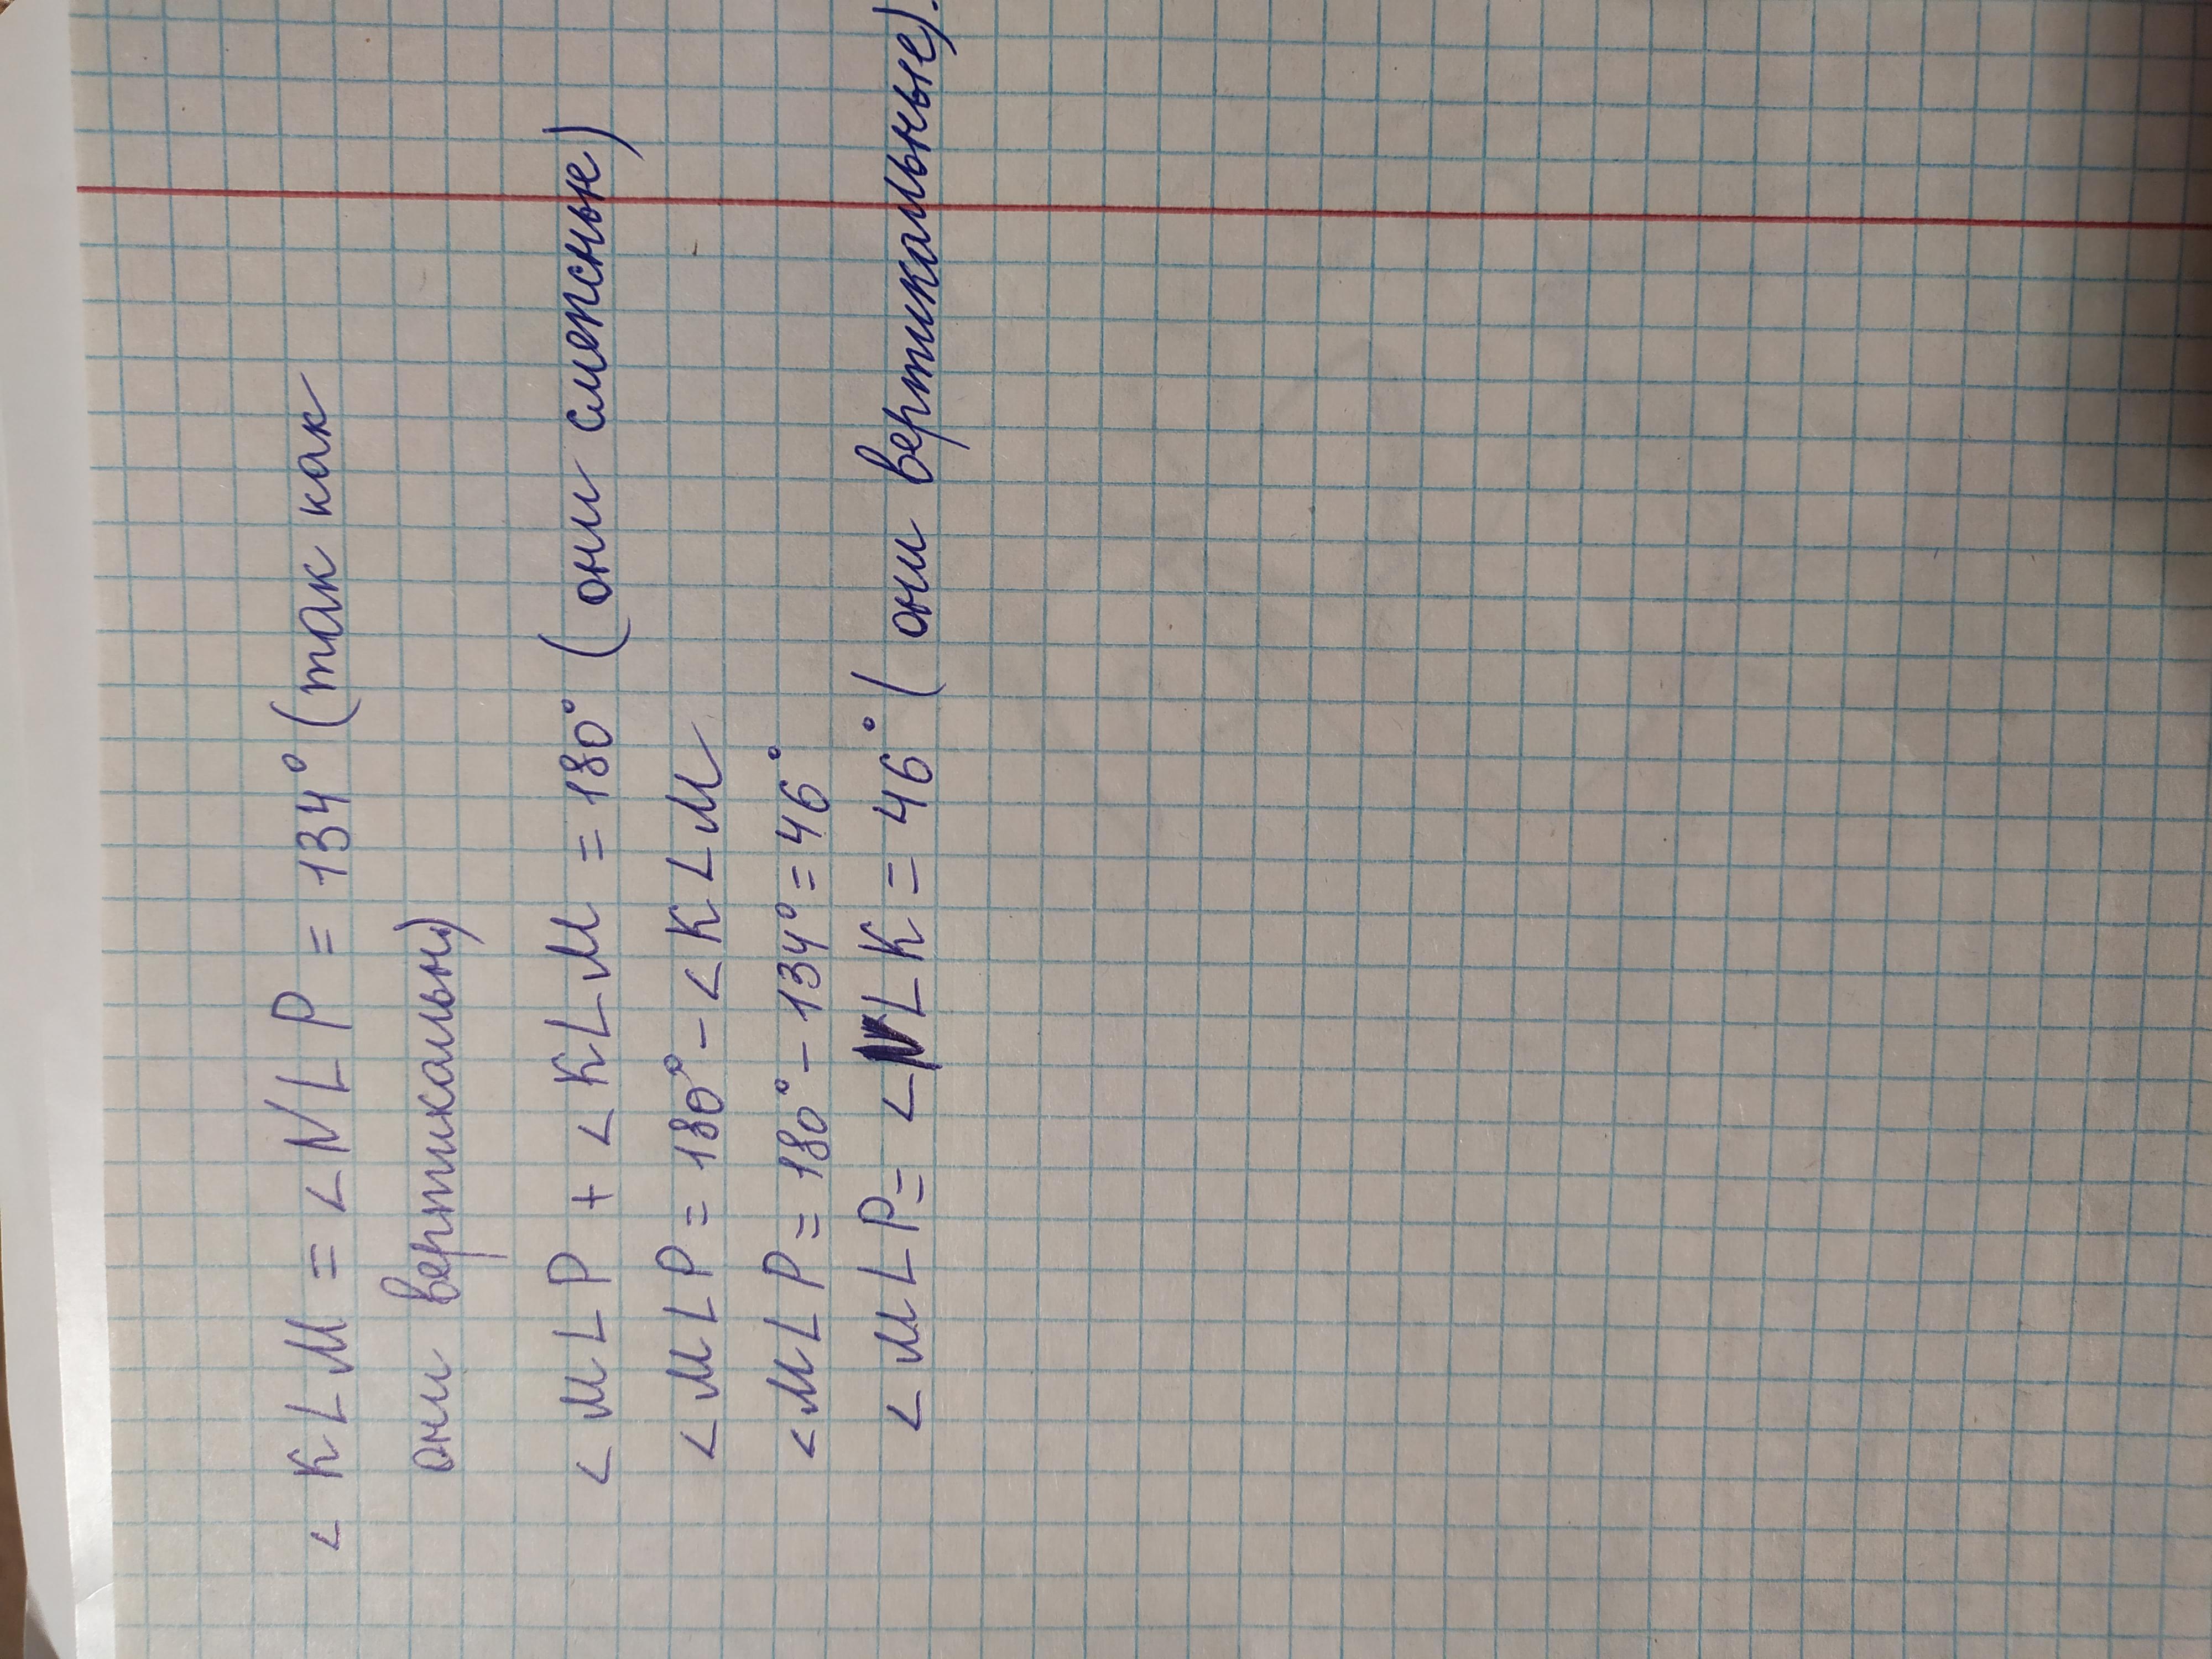 < KLM = < NLP = 134° (так как
они вертикальн)
< MLP + < KLM = 180° (они смежные)
< MLP = 180° - < KLM
< MLP = 180° - 134° = 46°
< MLP = < NLK = 46° (они вертикальные).